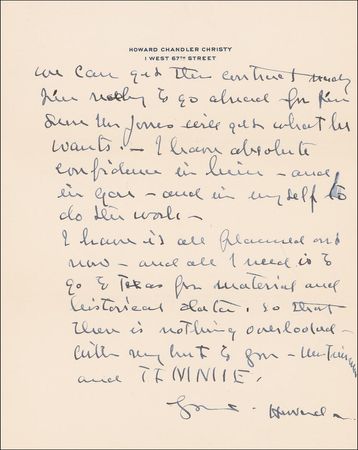 HOWARD CHANDLER CHRISTY
1 WEST 67TH STREET
we can get the contract ready
I'm ready to go ahead for I'm
sure Mr Jones will get what he
wants. — I have absolute
confidence in him — and
in you — and in myself to
do the work —
I have it all planned out
now — and all I need is to
go to Texas for material and
historical data, so that
there is nothing overlooked —
with my best to you —
and TENNIE.
Yours Howard